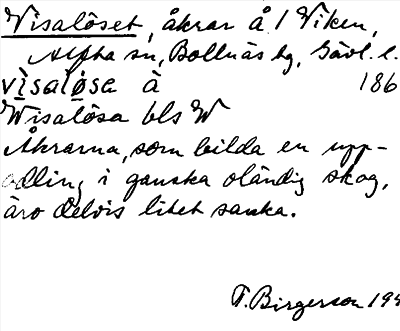 Visalöset, åkrar å 1 Viken,
Alfta sn, Bollnäs tg, Gävl. l.
vìsaløsa å 186
Wisalösa bls W
Åkrarna, som bilda en upp-
odling i ganska oländig skog,
äro delvis litet sanka.
T. Birgerson 194